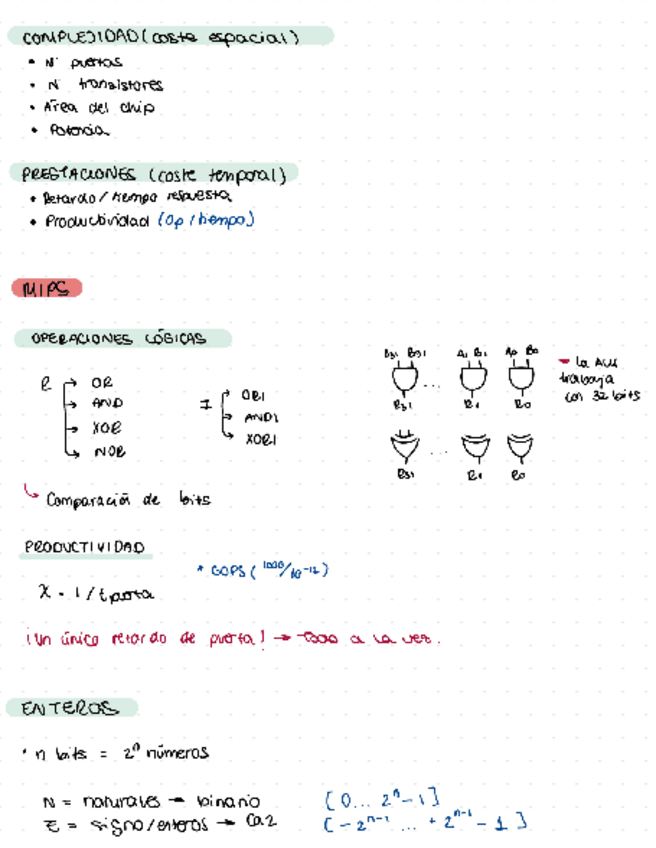 COMPLEJIDAD (coste espacial)
• Nº puertas
• Nº transistores
• Área del chip
• Potencia
PRESTACIONES (coste temporal)
• Retardo / tiempo respuesta
• Productividad (Op / tiempo)
MIPS
OPERACIONES LÓGICAS
R → OR
→ AND
→ XOR
→ NOR
I → ORI
→ ANDI
→ XORI
B31 B31 A1 B1 A0 B0
...
R31 R1 R0
...
R31 R1 R0
→ La ALU
trabaja
con 32 bits
↳ Comparación de bits
PRODUCTIVIDAD
* GOPS (1000/10^-12)
X = 1 / tpuerta
¡Un único retardo de puerta! → Todo a la vez.
ENTEROS
• n bits = 2^n números
N = naturales → binario [0... 2^n - 1]
Z = signo/enteros → Ca2 [-2^n-1 ... + 2^n-1 - 1]